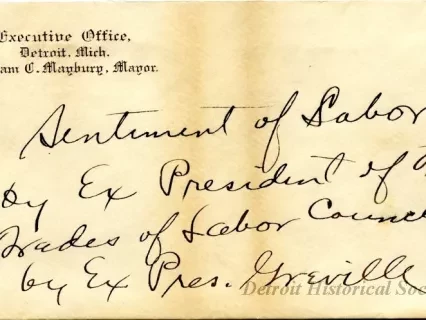 Executive Office,
Detroit, Mich.
am C. Maybury, Mayor.
Sentiment of Labor
by Ex President of
Trades of Labor Counc
by Ex Pres. Greville
Detroit Historical Soc